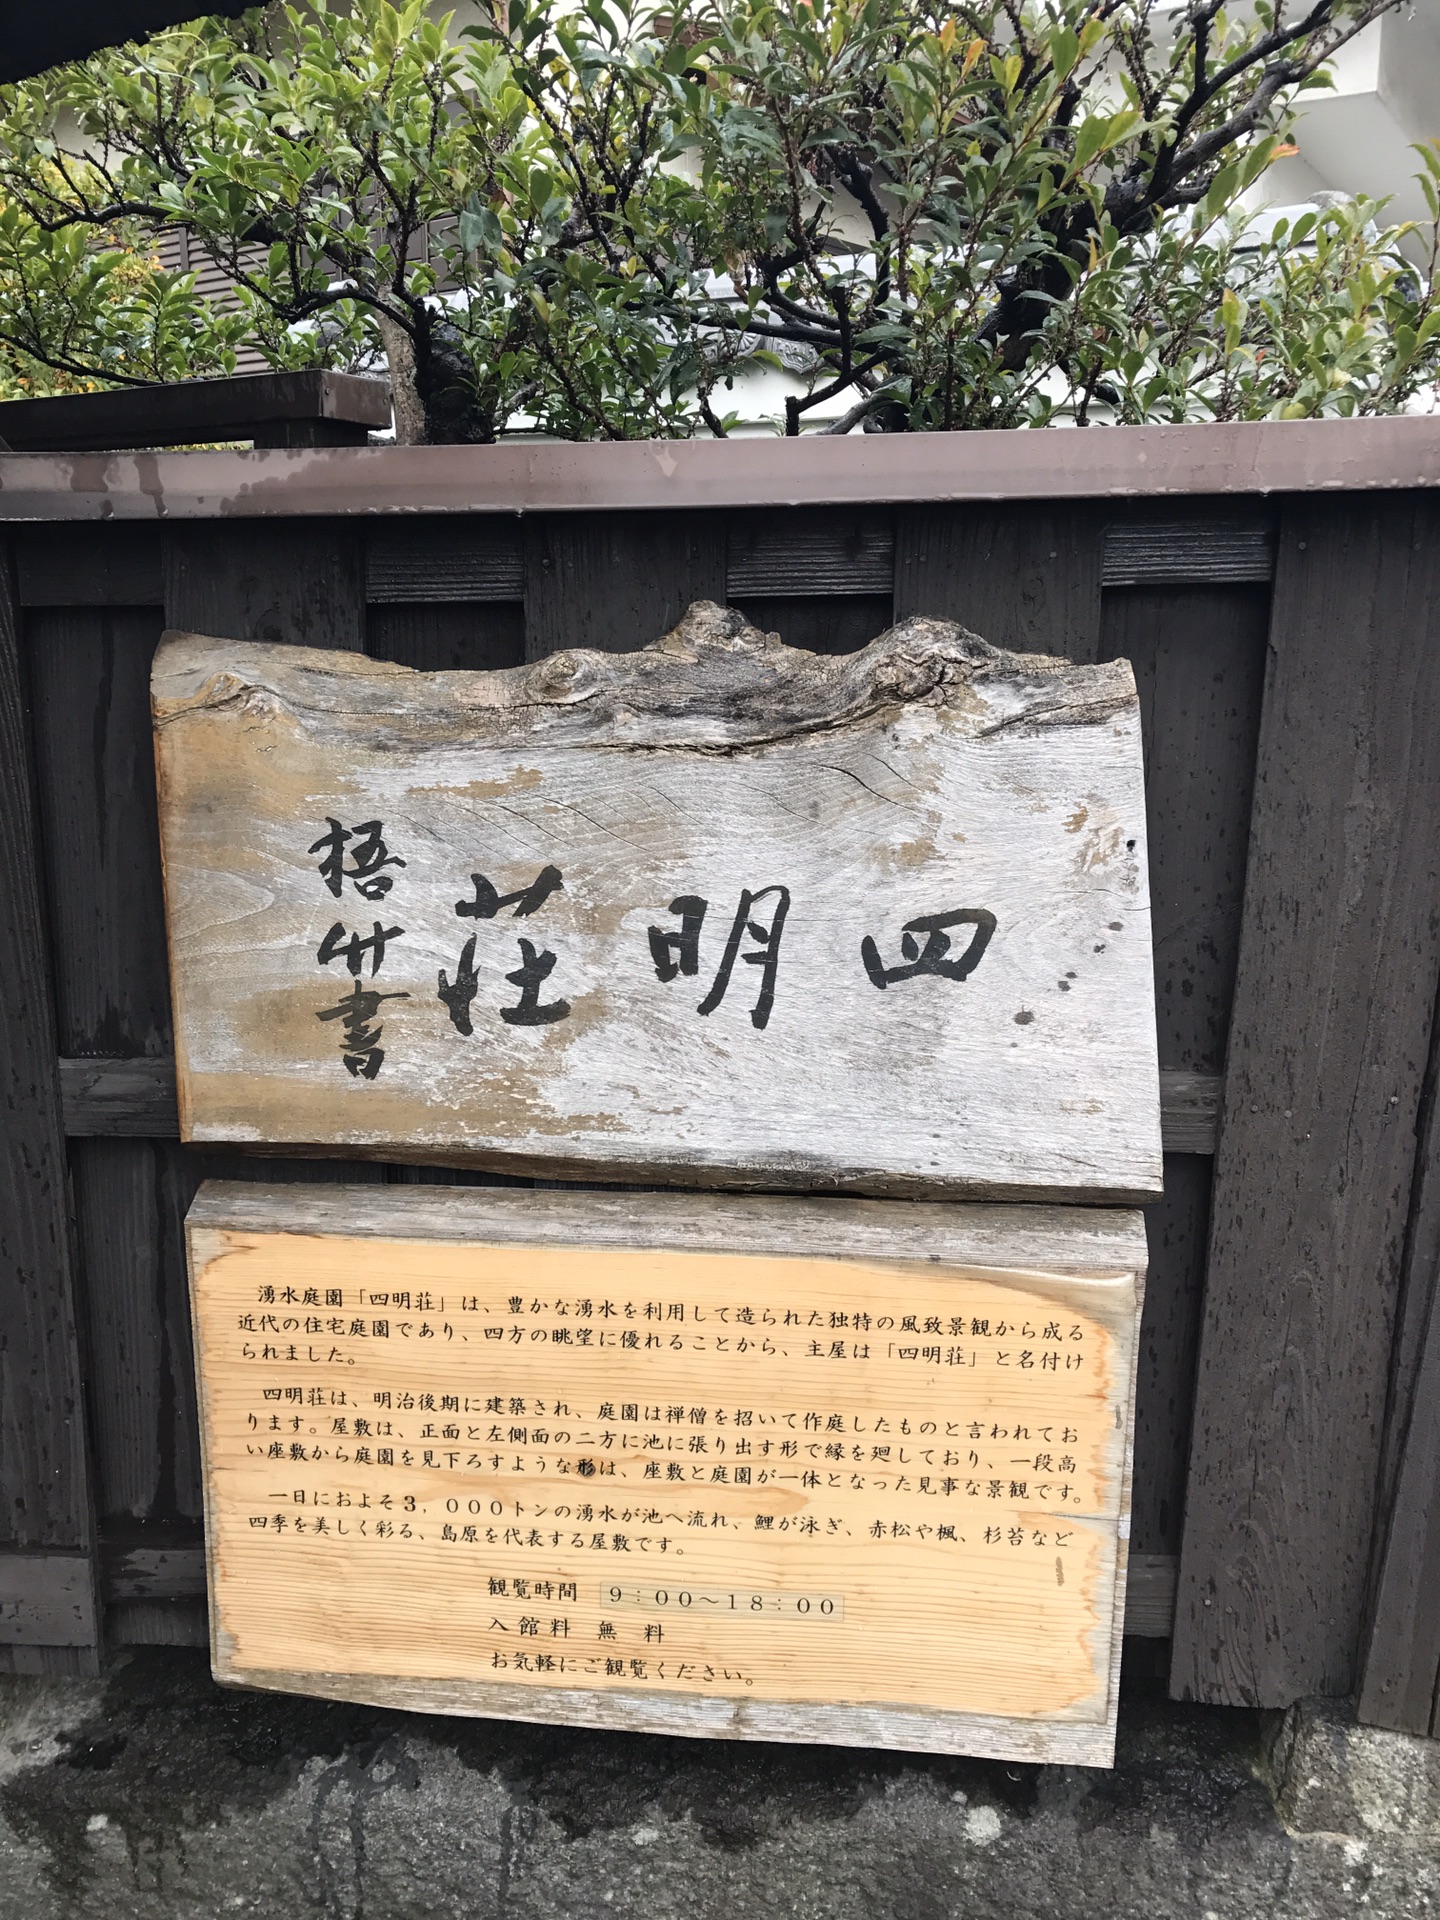 四明荘
梧竹書
湧水庭園「四明荘」は、豊かな湧水を利用して造られた独特の風致景観から成る
近代の住宅庭園であり、四方の眺望に優れることから、主屋は「四明荘」と名付け
られました。
四明荘は、明治後期に建築され、庭園は禅僧を招いて作庭したものと言われてお
ります。屋敷は、正面と左側面の二方に池に張り出す形で縁を廻しており、一段高
い座敷から庭園を見下ろすような形は、座敷と庭園が一体となった見事な景観です。
一日におよそ3，０００トンの湧水が池へ流れ、鯉が泳ぎ、赤松や楓、杉苔など
四季を美しく彩る、島原を代表する屋敷です。
観覧時間 ９：００～１８：００
入館料 無料
お気軽にご観覧ください。